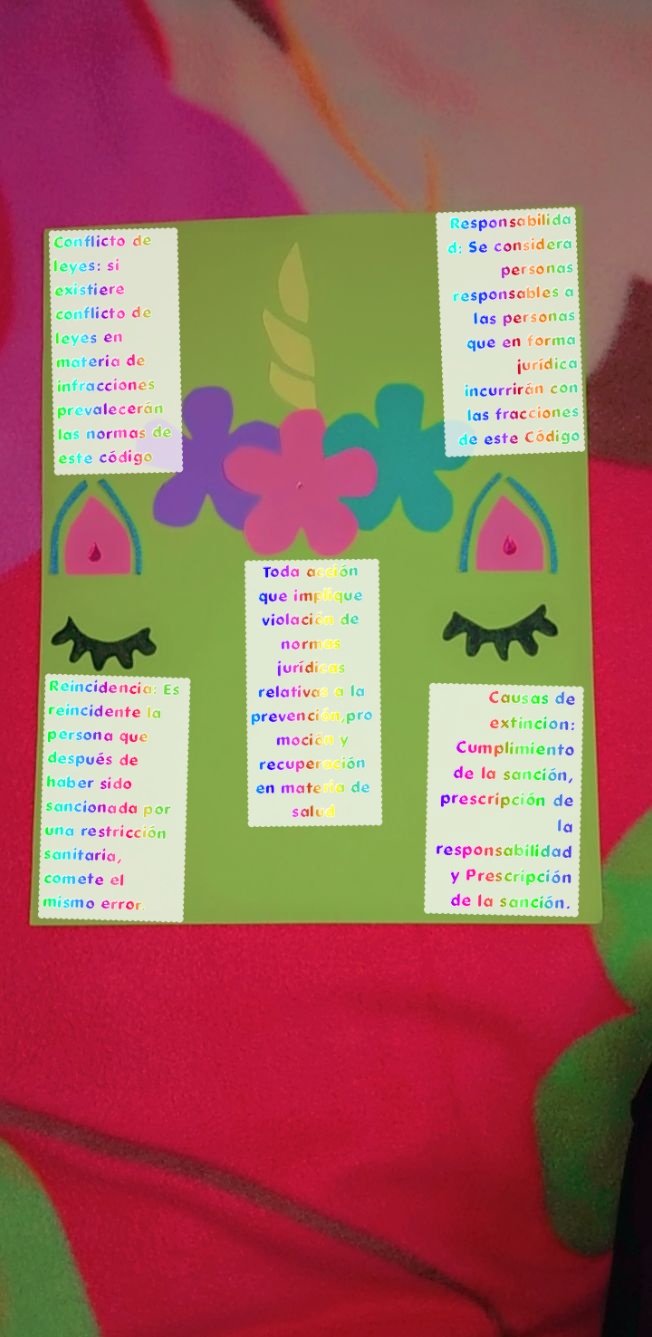 Conflicto de
leyes: si
existiere
conflicto de
leyes en
materia de
infracciones
prevalecerán
las normas de
este código
Responsabilida
d: Se considera
personas
responsables a
las personas
que en forma
jurídica
incurrirán con
las fracciones
de este Código
Toda acción
que implique
violación de
normas
jurídicas
relativas a la
prevención,pro
moción y
recuperación
en materia de
salud
Reincidencia: Es
reincidente la
persona que
después de
haber sido
sancionada por
una restricción
sanitaria,
comete el
mismo error.
Causas de
extincion:
Cumplimiento
de la sanción,
prescripción de
la
responsabilidad
y Prescripción
de la sanción.